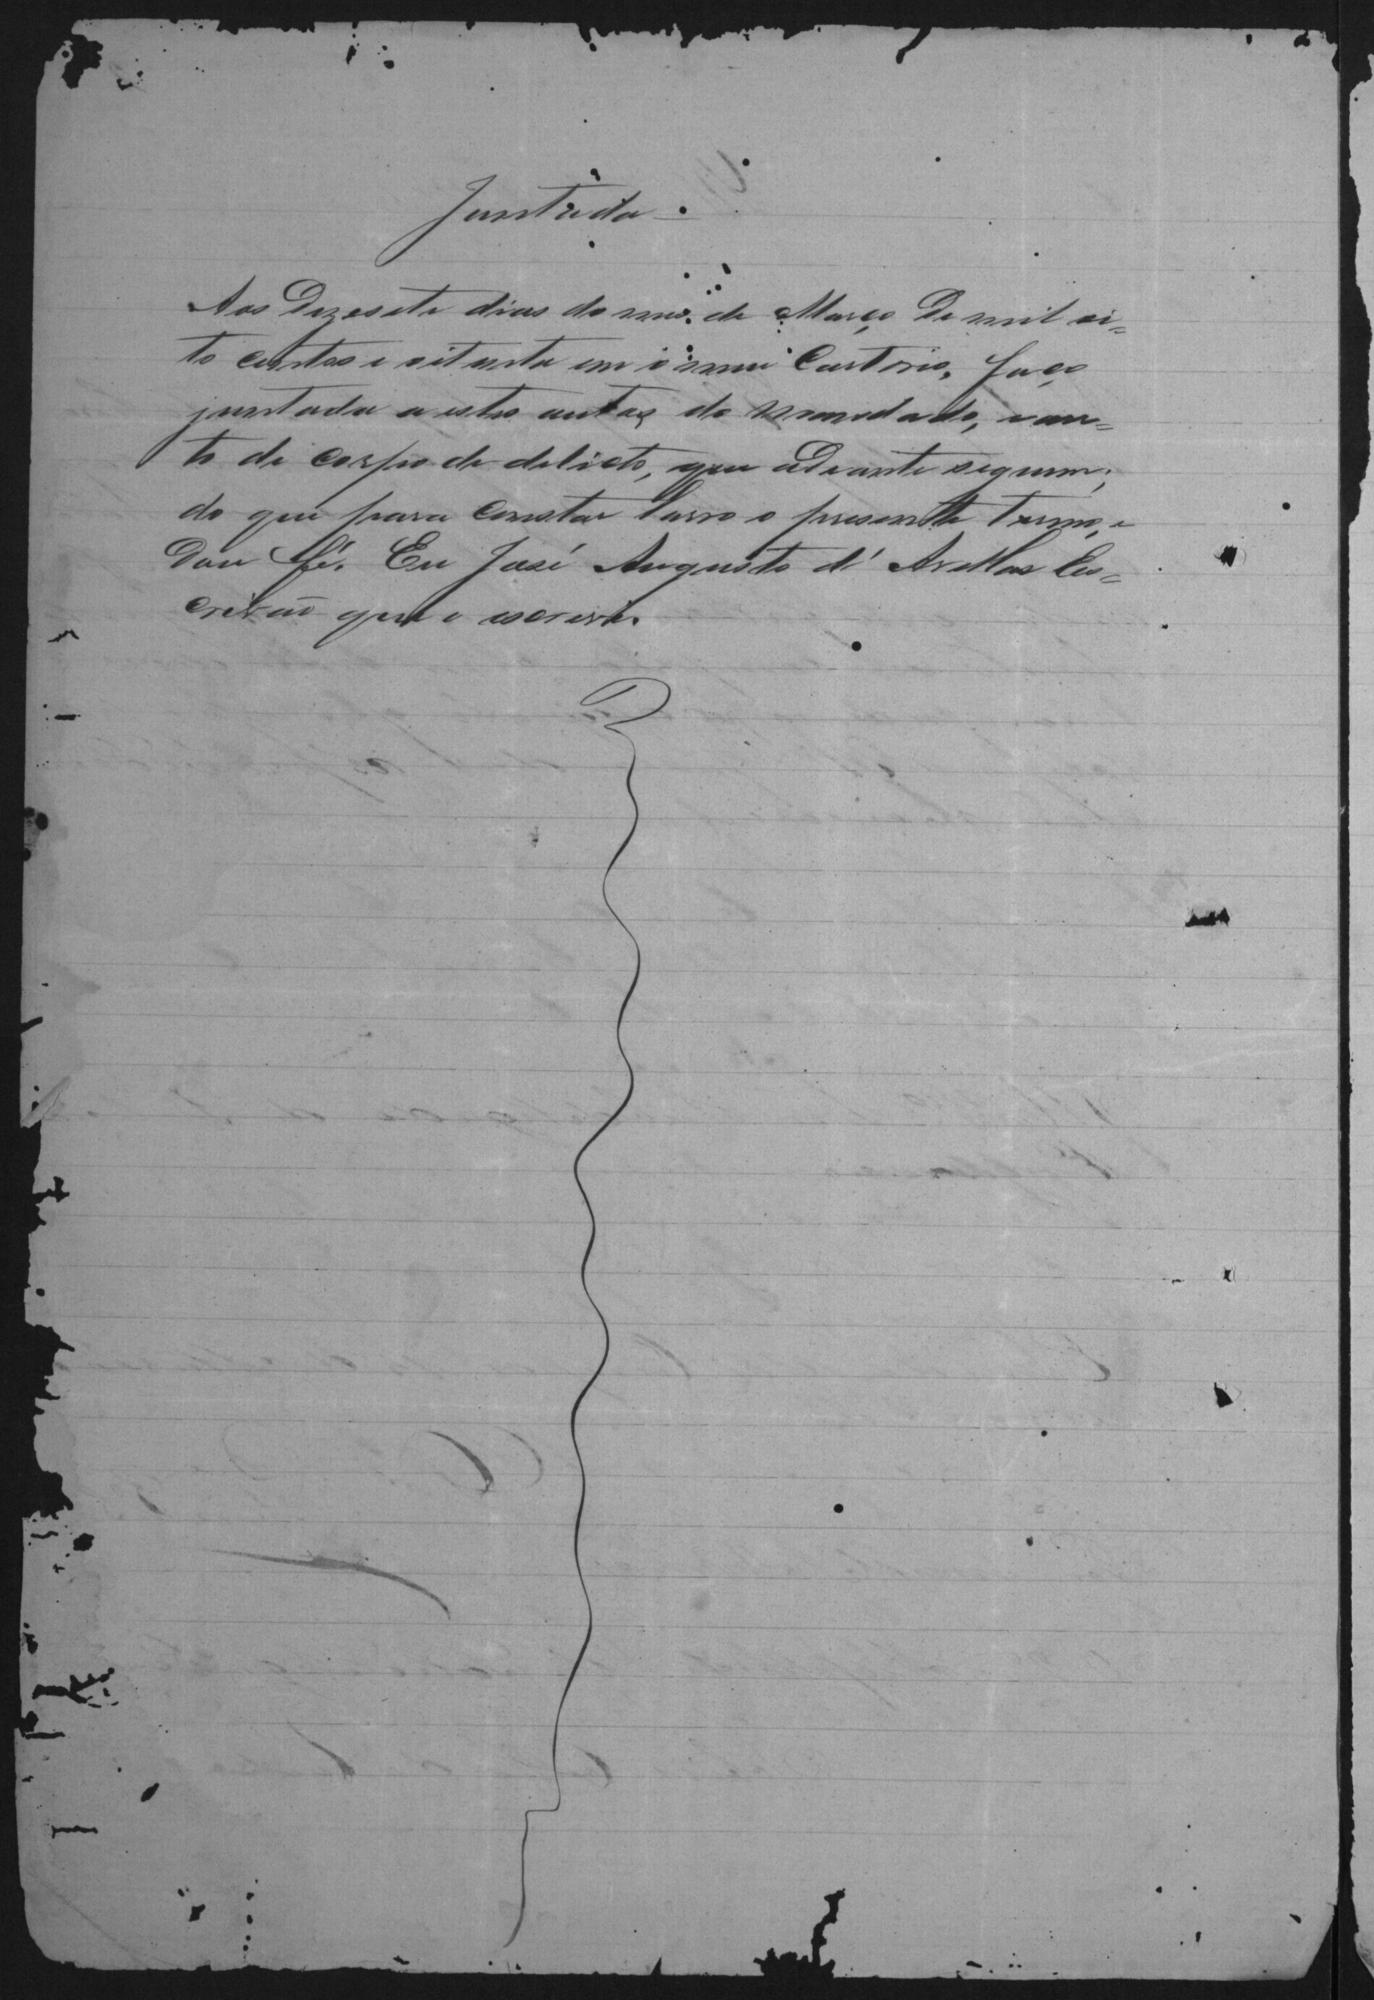 Juntada
Aos Dezesete dias do mes de Março De mil oi=
to centos e oitenta em o meu Cartorio, faço
juntada a estes autos do mandado, e au=
to de corpo de delicto, que adeante seguem;
do que para constar lavro o presente termo, e
Dou fé. Eu José Augusto d' Avellar Es=
crivão que o escrevi.